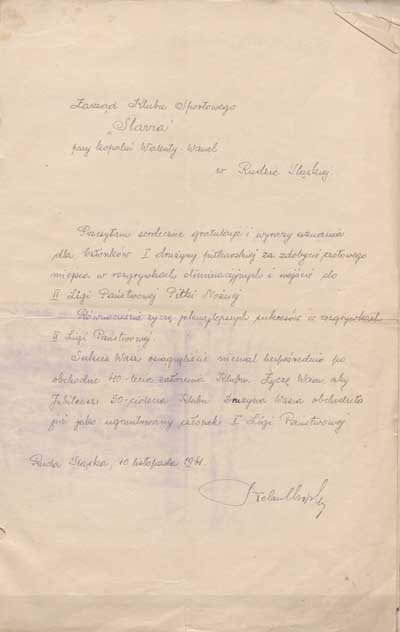 Zarząd Klubu Sportowego
„Slavia"
przy kopalni Walenty-Wawel
w Rudzie Śląskiej.
Przesyłam serdeczne gratulacje i wyrazy uznania
dla Członków I drużyny piłkarskiej za zdobycie czołowego
miejsca w rozgrywkach eliminacyjnych i wejście do
II Ligi Państwowej Piłki Nożnej
Równocześnie życzę jaknajlepszych sukcesów w rozgrywkach
II Ligi Państwowej.
Sukces Wasz osiągnęliście niemal bezpośrednio po
obchodzie 40-lecia założenia Klubu. Życzę Wam aby
Jubileusz 50-ciolecia Klubu Drużyna Wasza obchodziła
już jako ugruntowany członek I Ligi Państwowej
Ruda Śląska, 10 listopada 1961.